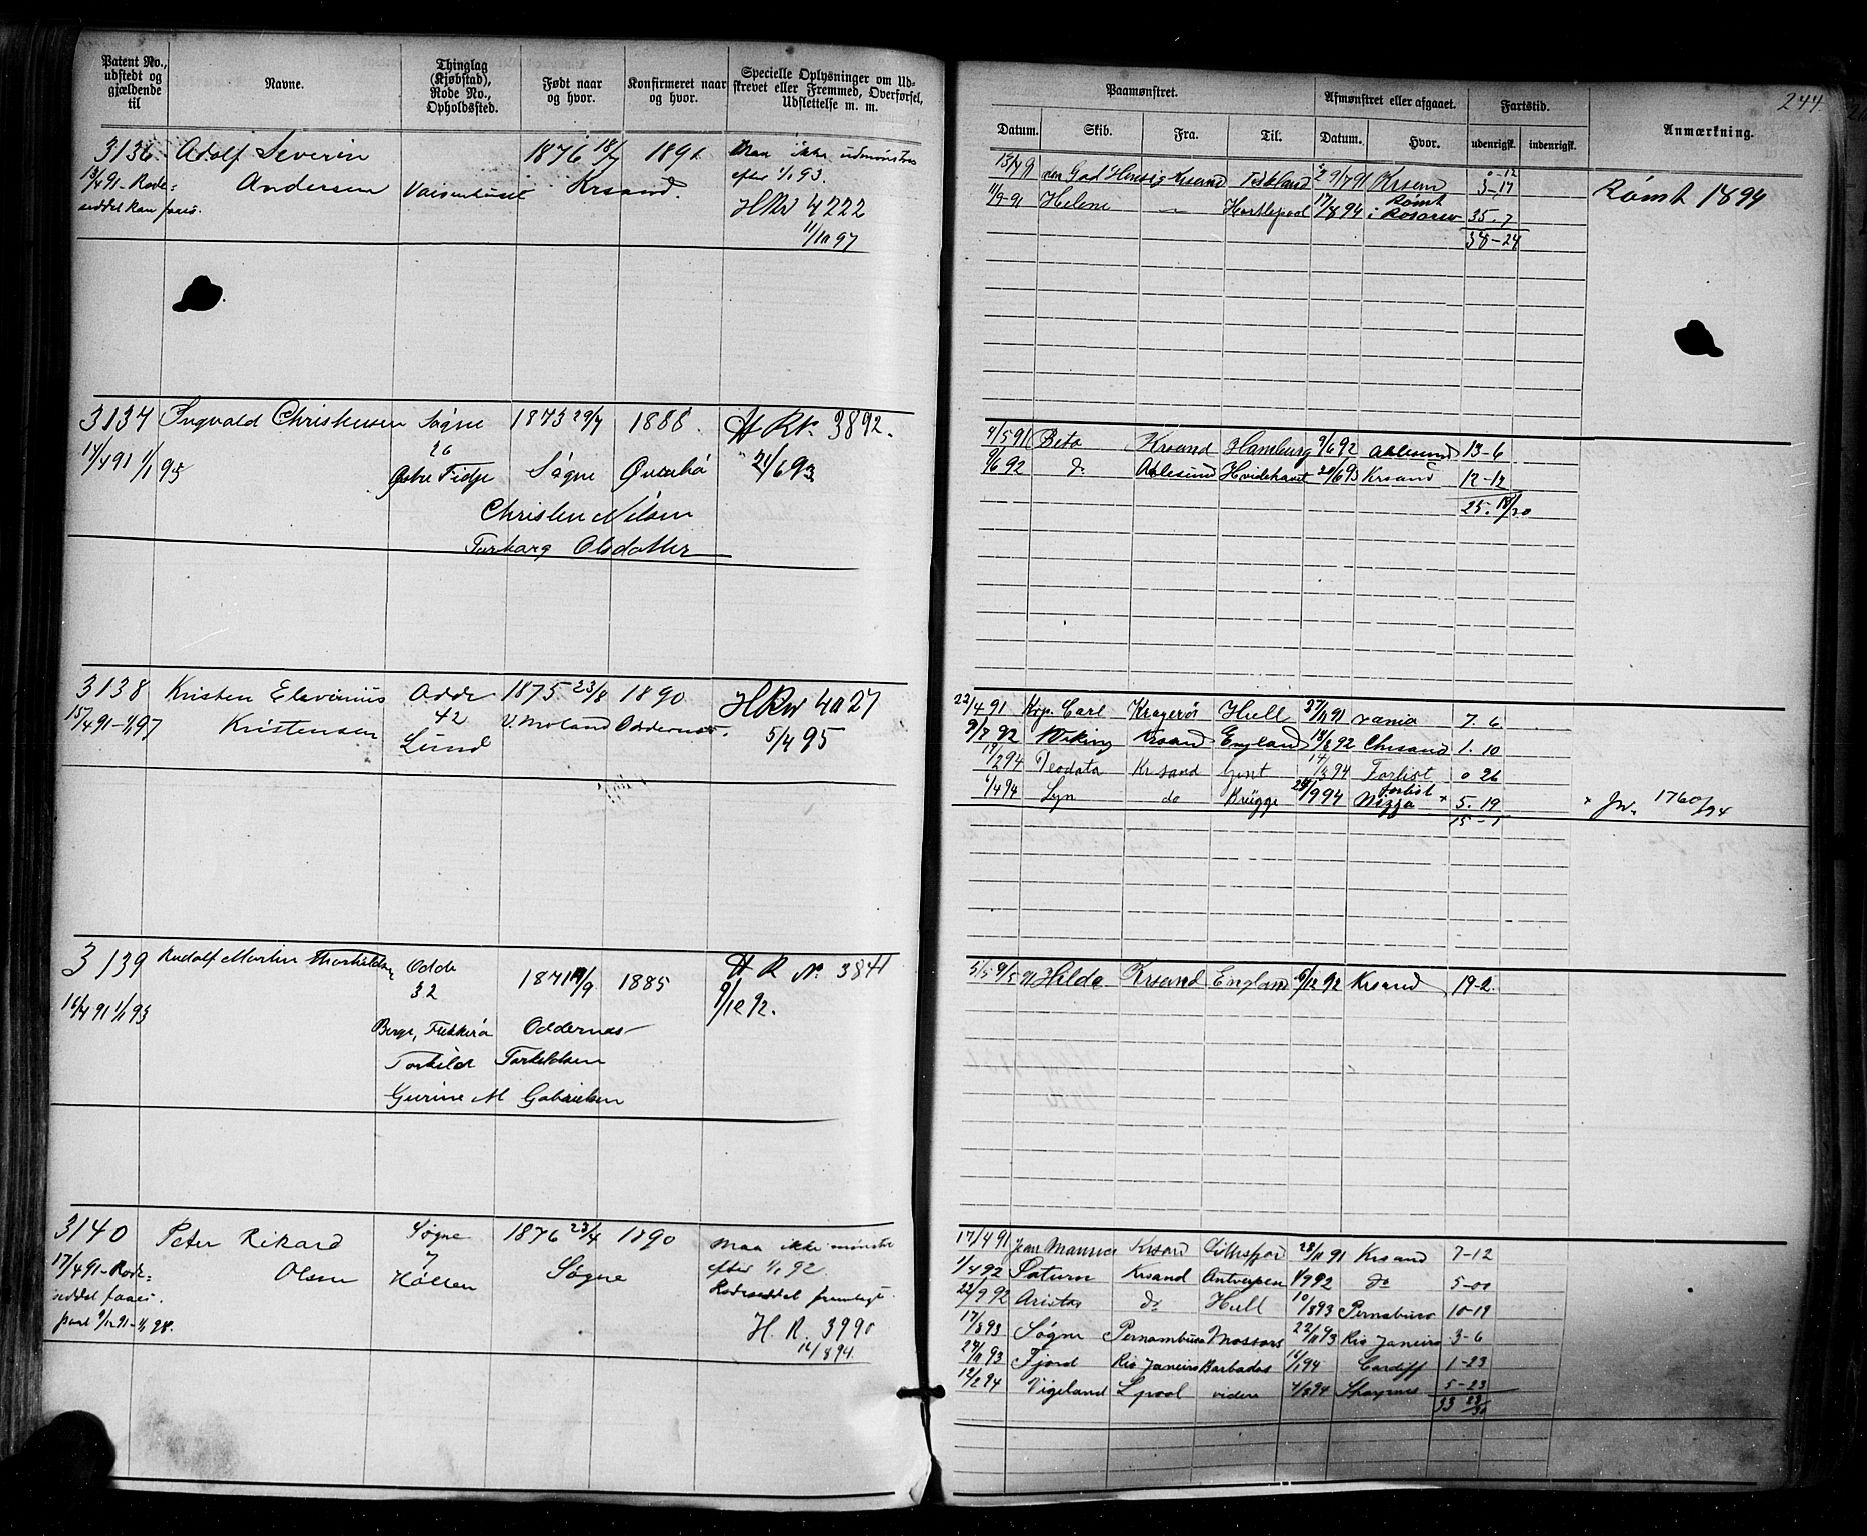 Patent No., udstedt og gjældende til
Navne.
Thinglag (Kjøbstad), Rode No., Opholdssted.
Født naar og hvor.
Konfirmeret naar og hvor.
Specielle Oplysninger om Udskrevet eller Fremmed, Overførsel, Udslettelse m. m.
Paamønstret.
Afmønstret eller afgaaet.
Fartstid.
244.
Datum.
Skib.
Fra.
Til.
Datum.
Hvor.
udenrigsk.
indenrigsk.
Anmærkning.
3136 Adolf Severin 1876 18/7 1891 Maa ikke udmønstres
13/4 91 - Rode= Andersen Vaisenhuset Krsand. efter 1/1 93.
seddel kan faaes. HRN 4222
11/10 97
13/4 91 Krsand 9/7 91 Krsem 3-17
11/9-91 Helene Hartlepool 17/8 94 Rømt i Rosario 35-7
38-24
Rømt 1894
3137 Ingvald Christensen Søgne 1873 29/7 1888. H R Nr. 3892.
14/4 91 1/1 95 26 Søgne 21/6 93
Østre Tidje
Christen Nilsen
Olsdatter
4/5 91 Beta Krsand Hamburg 9/6 92 Aalesund 13-6
9/6 92 do Aalesund Hvidehavet 20/6 93 Krsand 12-12
3138 Kristen Elevinius Odde 1875 23/8 1890 HRN 4027
15/4 91-1/1 97 Kristensen 42 V. Moland Oddernes. 5/4 95
Lund
22/4 91 Kong Carl Kragerø Hull 27/11 91 7. 6
9/7 92 Viking Krsand England 18/8 92 Chrsand 1. 10
19/2 94 Teodata Krsand Gent 14/3 94 Forlist 0 26
1/4 94 Lyn do Brügge 20/9 94 forlist Nizza × 5. 19
15-1
× Jn. 1760/94
3139 Rudolf Martin Thorkildsen Odde 1871 19/9 1885 H R Nr. 3841
16/4 91 1/1 93 32 9/12 92.
Berge, Flekkerø Oddernes
Torkild Torkildsen
Gurine M Gabrielsen
5/5 9/5 91 Hilda Krsand England 6/12 92 Krsand 19-2.
3140 Peter Rikard Søgne 1876 23/4 1890 Maa ikke mønstre
17/4 91 - Rode= Olsen 7 Søgne efter 1/1 92
seddel faaes. Høllen Rodeseddel fremlagt.
H. R. 3990
16/8 94.
17/4 91 Krsand 28/11 91 Krsand 7-12
1/4 92 Saturn Krsand Antwerpen 1/9 92 do 5-00
22/9 92 Aristos do Hull 10/8 93 Pernabuco 10-19
17/8 93 Søgne Pernambuco 22/11 93 Rio Janeiro 3-6
24/11 93 Fjord Rio Janeiro Barbados 16/1 94 Cardiff 1-23
12/2 94 Vigeland Lpool videre 4/8 94 5-23